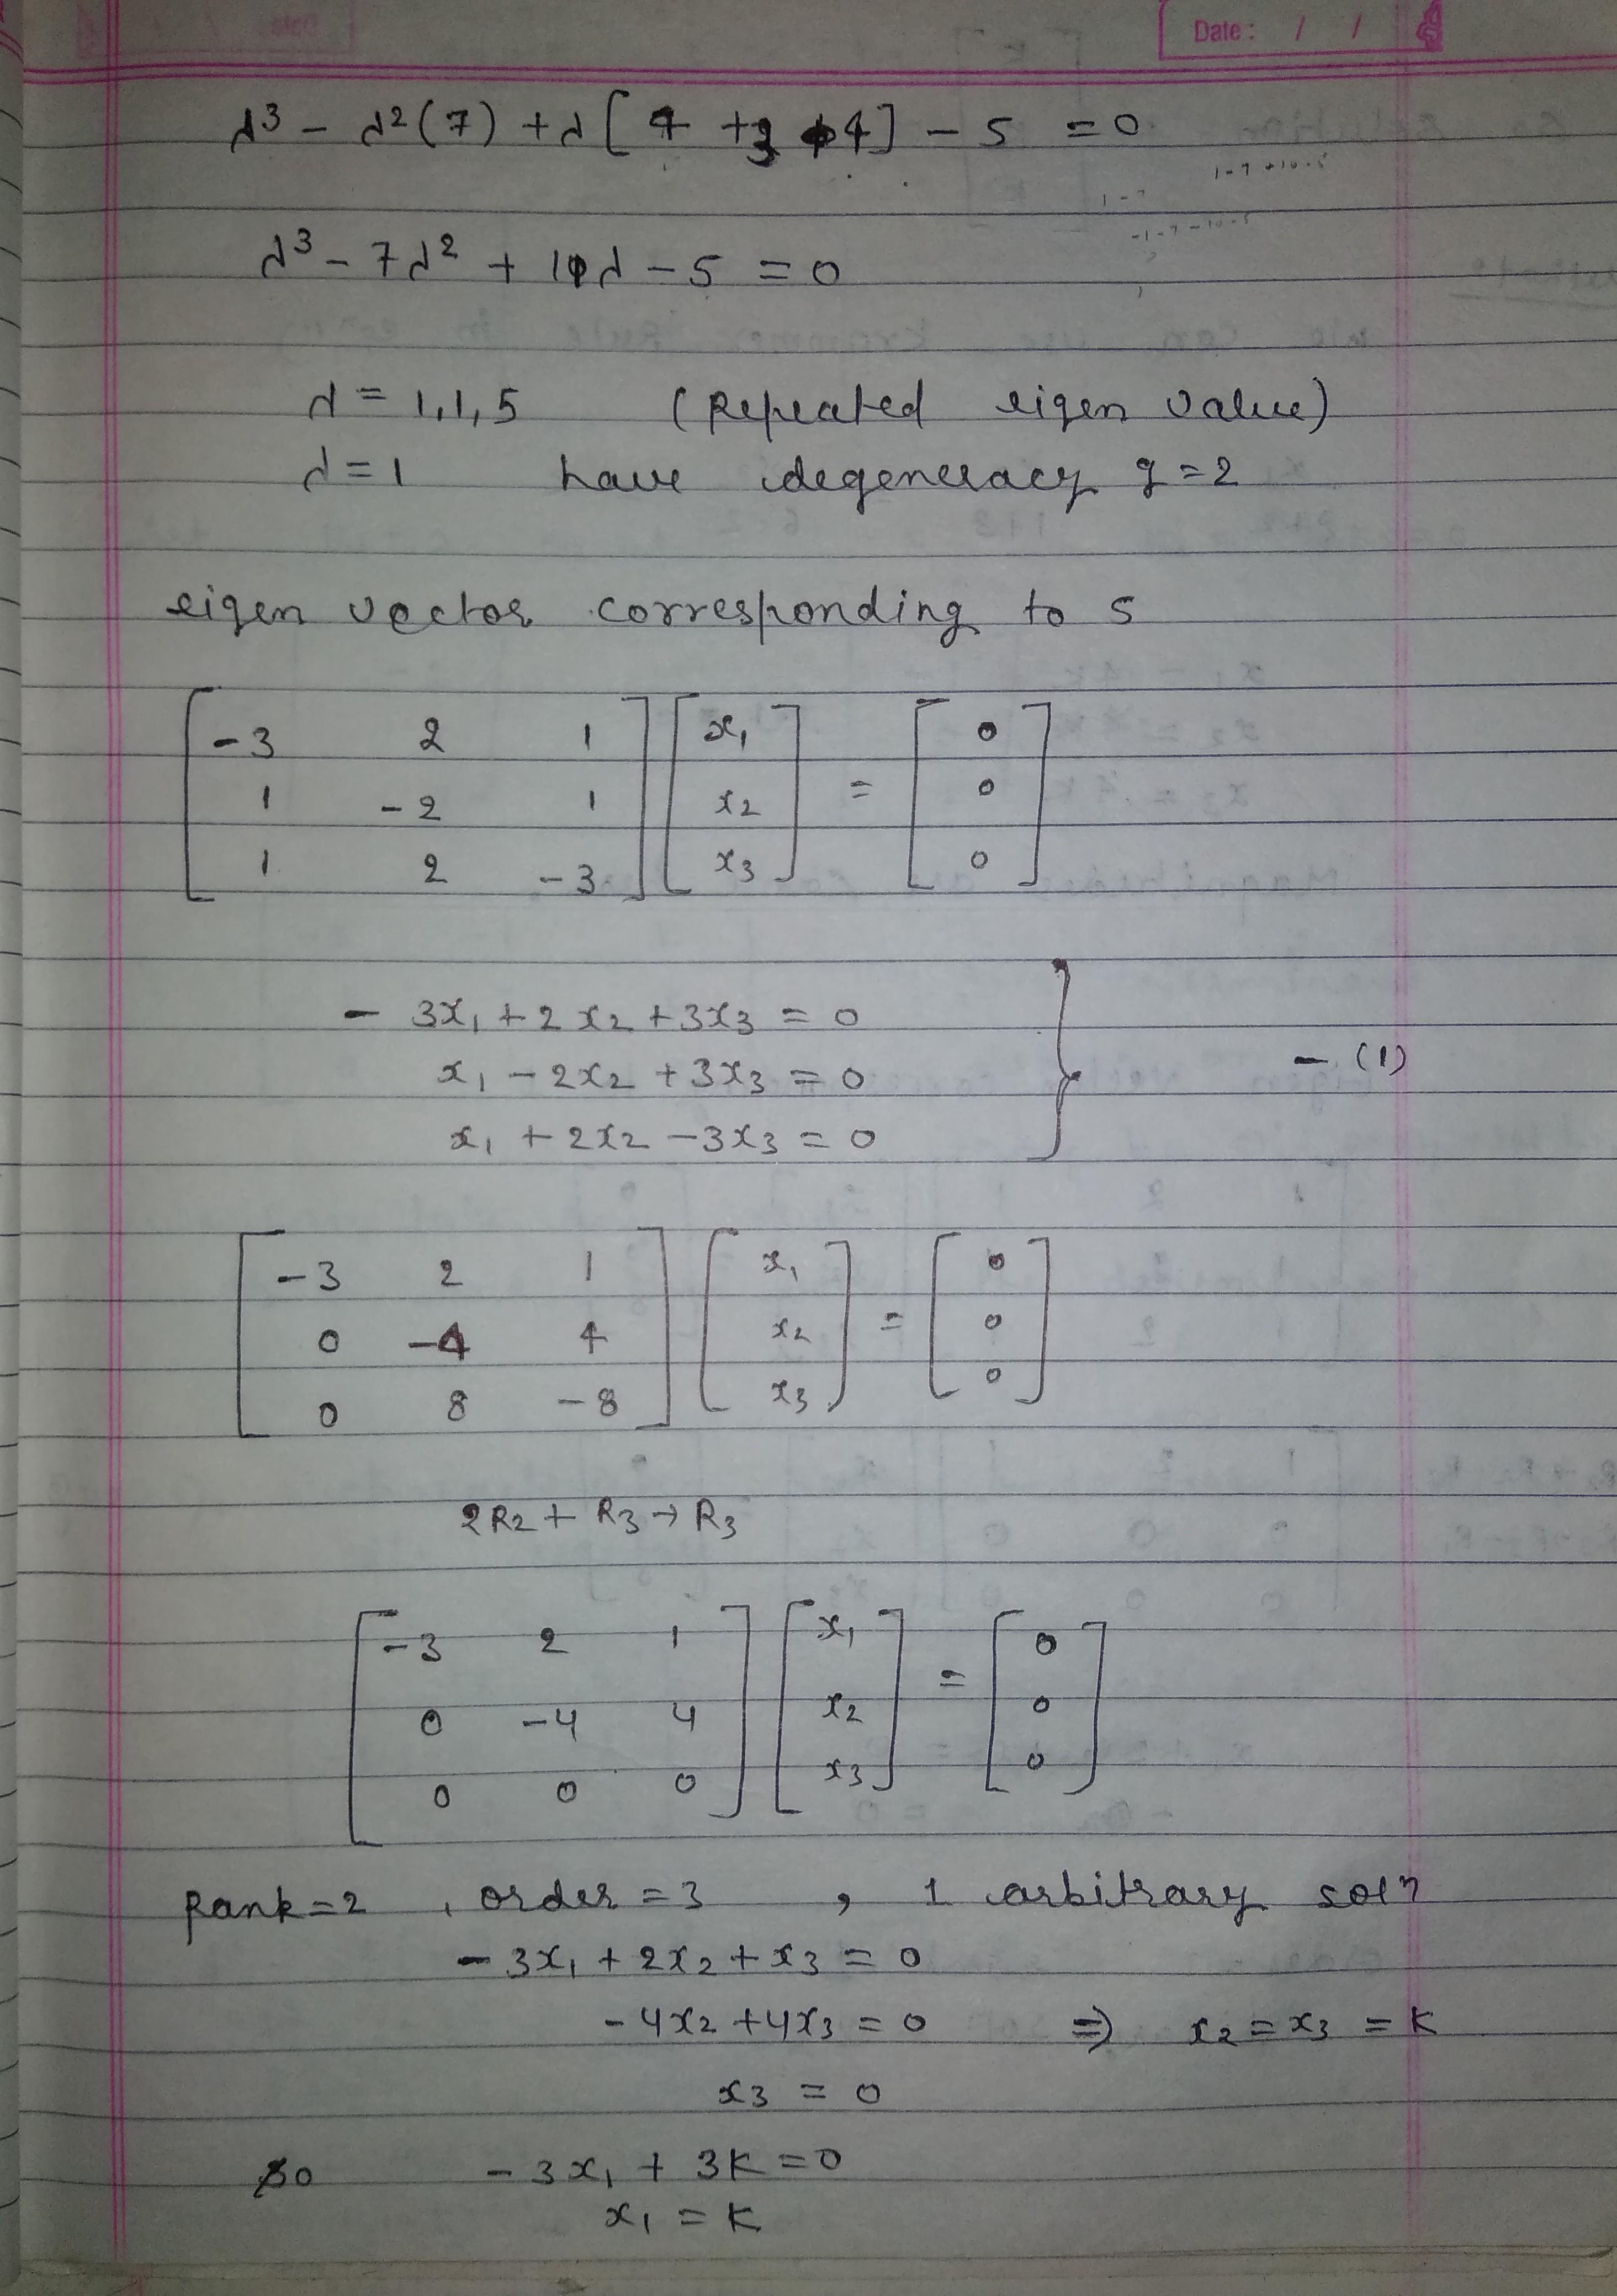 Date: / /
λ³ - λ²(7) + λ[4 + 3 + 4] - 5 = 0
λ³ - 7λ² + 11λ - 5 = 0
λ = 1,1,5 (Repeated eigen value)
λ = 1 have degeneracy g = 2
eigen vector corresponding to 5
[-3 2 1] [x₁] [0]
[1 -2 1] [x₂] = [0]
[1 2 -3] [x₃] [0]
- 3x₁ + 2x₂ + 3x₃ = 0
x₁ - 2x₂ + 3x₃ = 0 - (1)
x₁ + 2x₂ - 3x₃ = 0
[-3 2 1] [x₁] [0]
[0 -4 4] [x₂] = [0]
[0 8 -8] [x₃] [0]
2R₂ + R₃ → R₃
[-3 2 1] [x₁] [0]
[0 -4 4] [x₂] = [0]
[0 0 0] [x₃] [0]
Rank = 2, order = 3, 1 arbitrary solⁿ
- 3x₁ + 2x₂ + x₃ = 0
- 4x₂ + 4x₃ = 0 ⇒ x₂ = x₃ = K
x₃ = 0
So - 3x₁ + 3K = 0
x₁ = K